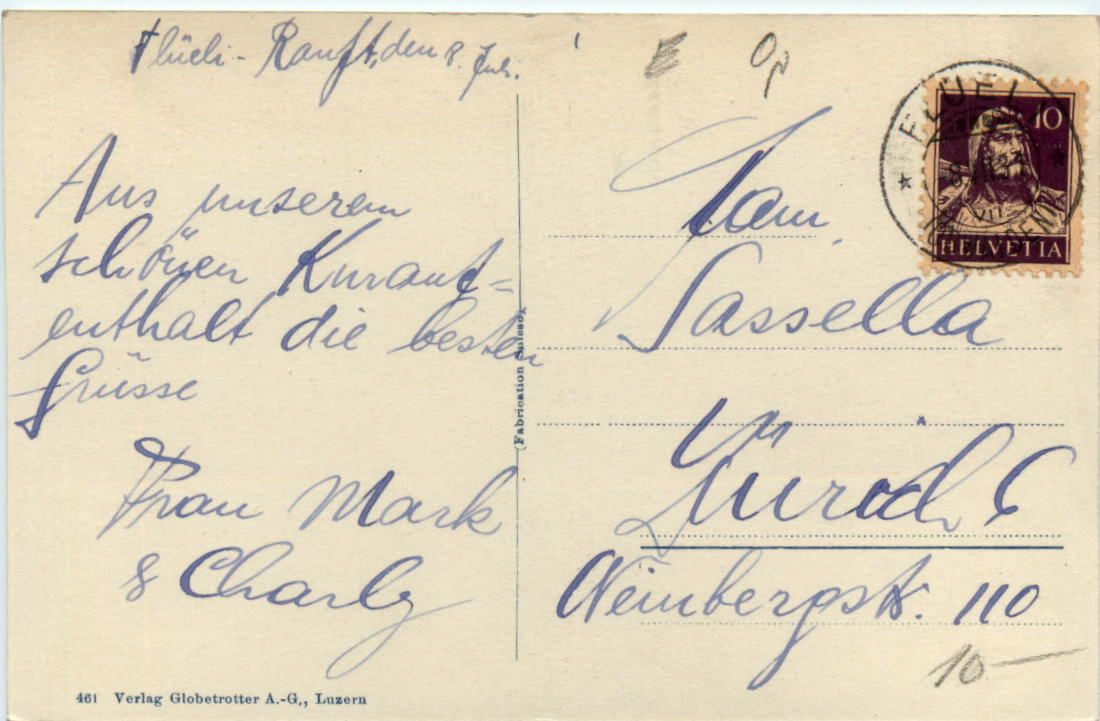 Flüeli - Ranft, den 8. Juli.
Aus unserem
schönen Kurauf=
enthalt die besten
Grüsse
Frau Mark
& Charly
461 Verlag Globetrotter A.-G., Luzern
(Fabrication Suisse)
10
HELVETIA
FLÜELI
VII
Fam.
Sassella
Zürich 6
Weinbergstr. 110
10-